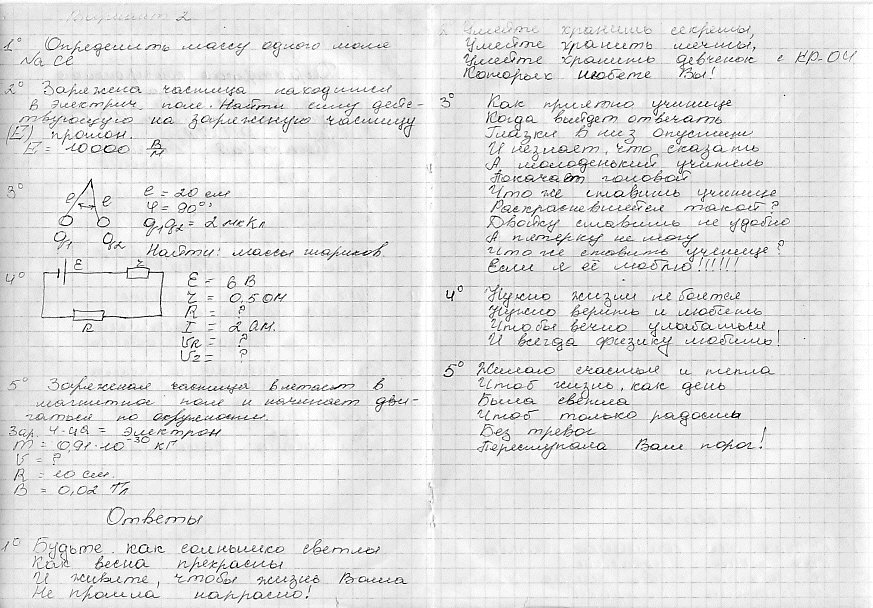 Вариант 2
1° Определить массу одного моля
Na Cl
2° Заряжена частица находится
в электрич. поле. Найти силу дейс-
твующую на заряженую частицу
(E) протон.
E = 10000 В/М
3°
l l
q1 q2
l = 20 см
φ = 90°
q1q2 = 2 мкКл
Найти: массы шариков.
4°
ε r
R
ε = 6 В
r = 0,5 Ом
R = ?
I = 2 Ам.
UR = ?
Ur = ?
5° Заряженая частица влетает в
магнитное поле и начинает дви-
гаться по окружности.
Зар. ч-ца = электрон
m = 0,91·10⁻³⁰ кг
V = ?
R = 10 см.
B = 0,02 Тл
Ответы
1° Будьте как солнышко светлы
Как весна прекрасны
И живите, чтобы жизнь Ваша
Не прошла напрасно!
2° Умейте хранить секреты,
Умейте хранить мечты,
Умейте хранить девченок с КР-04
Которых любете Вы!
3° Как приятно училице
Когда выйдет отвечать
Глазки в низ опустит
И незнает, что сказать
А молоденький учитель
Покачает головой
Что же ставить училице
Раскрасневшейся такой?
Двойку ставить не удобно
А пятерку не могу
Что же ставить училице?
Если я её люблю!!!!!!
4° Нужно жизни не боятся
Нужно верить и любить
Чтобы вечно улыбаться
И всегда физику любить!
5° Желаю счастья и тепла
Чтоб жизнь, как день
Была светла
Чтоб только радость
Без тревог
Переступала Ваш порог!